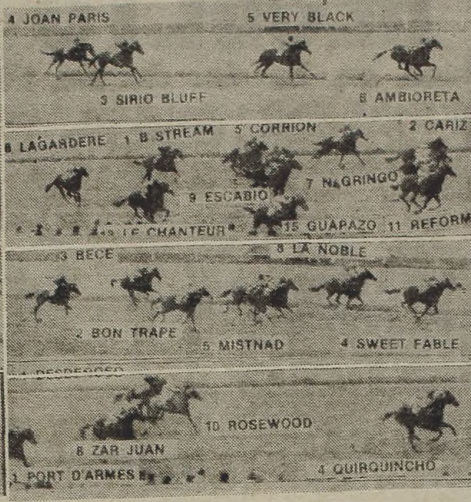 4 JOAN PARIS 5 VERY BLACK
3 SIRIO BLUFF 6 AMBIORETA
8 LAGARDERE 1 B STREAM 5 CORRION 2 CARIZ
9 ESCABIO 7 N&GRINGO
LE CHANTEUR 15 GUAPAZO 11 REFORM
3 BECE 8 LA NOBLE
2 BON TRAPE 5 MISTNAD 4 SWEET FABLE
10 ROSEWOOD
8 ZAR JUAN
1 PORT D'ARMES 4 QUIRQUINCHO